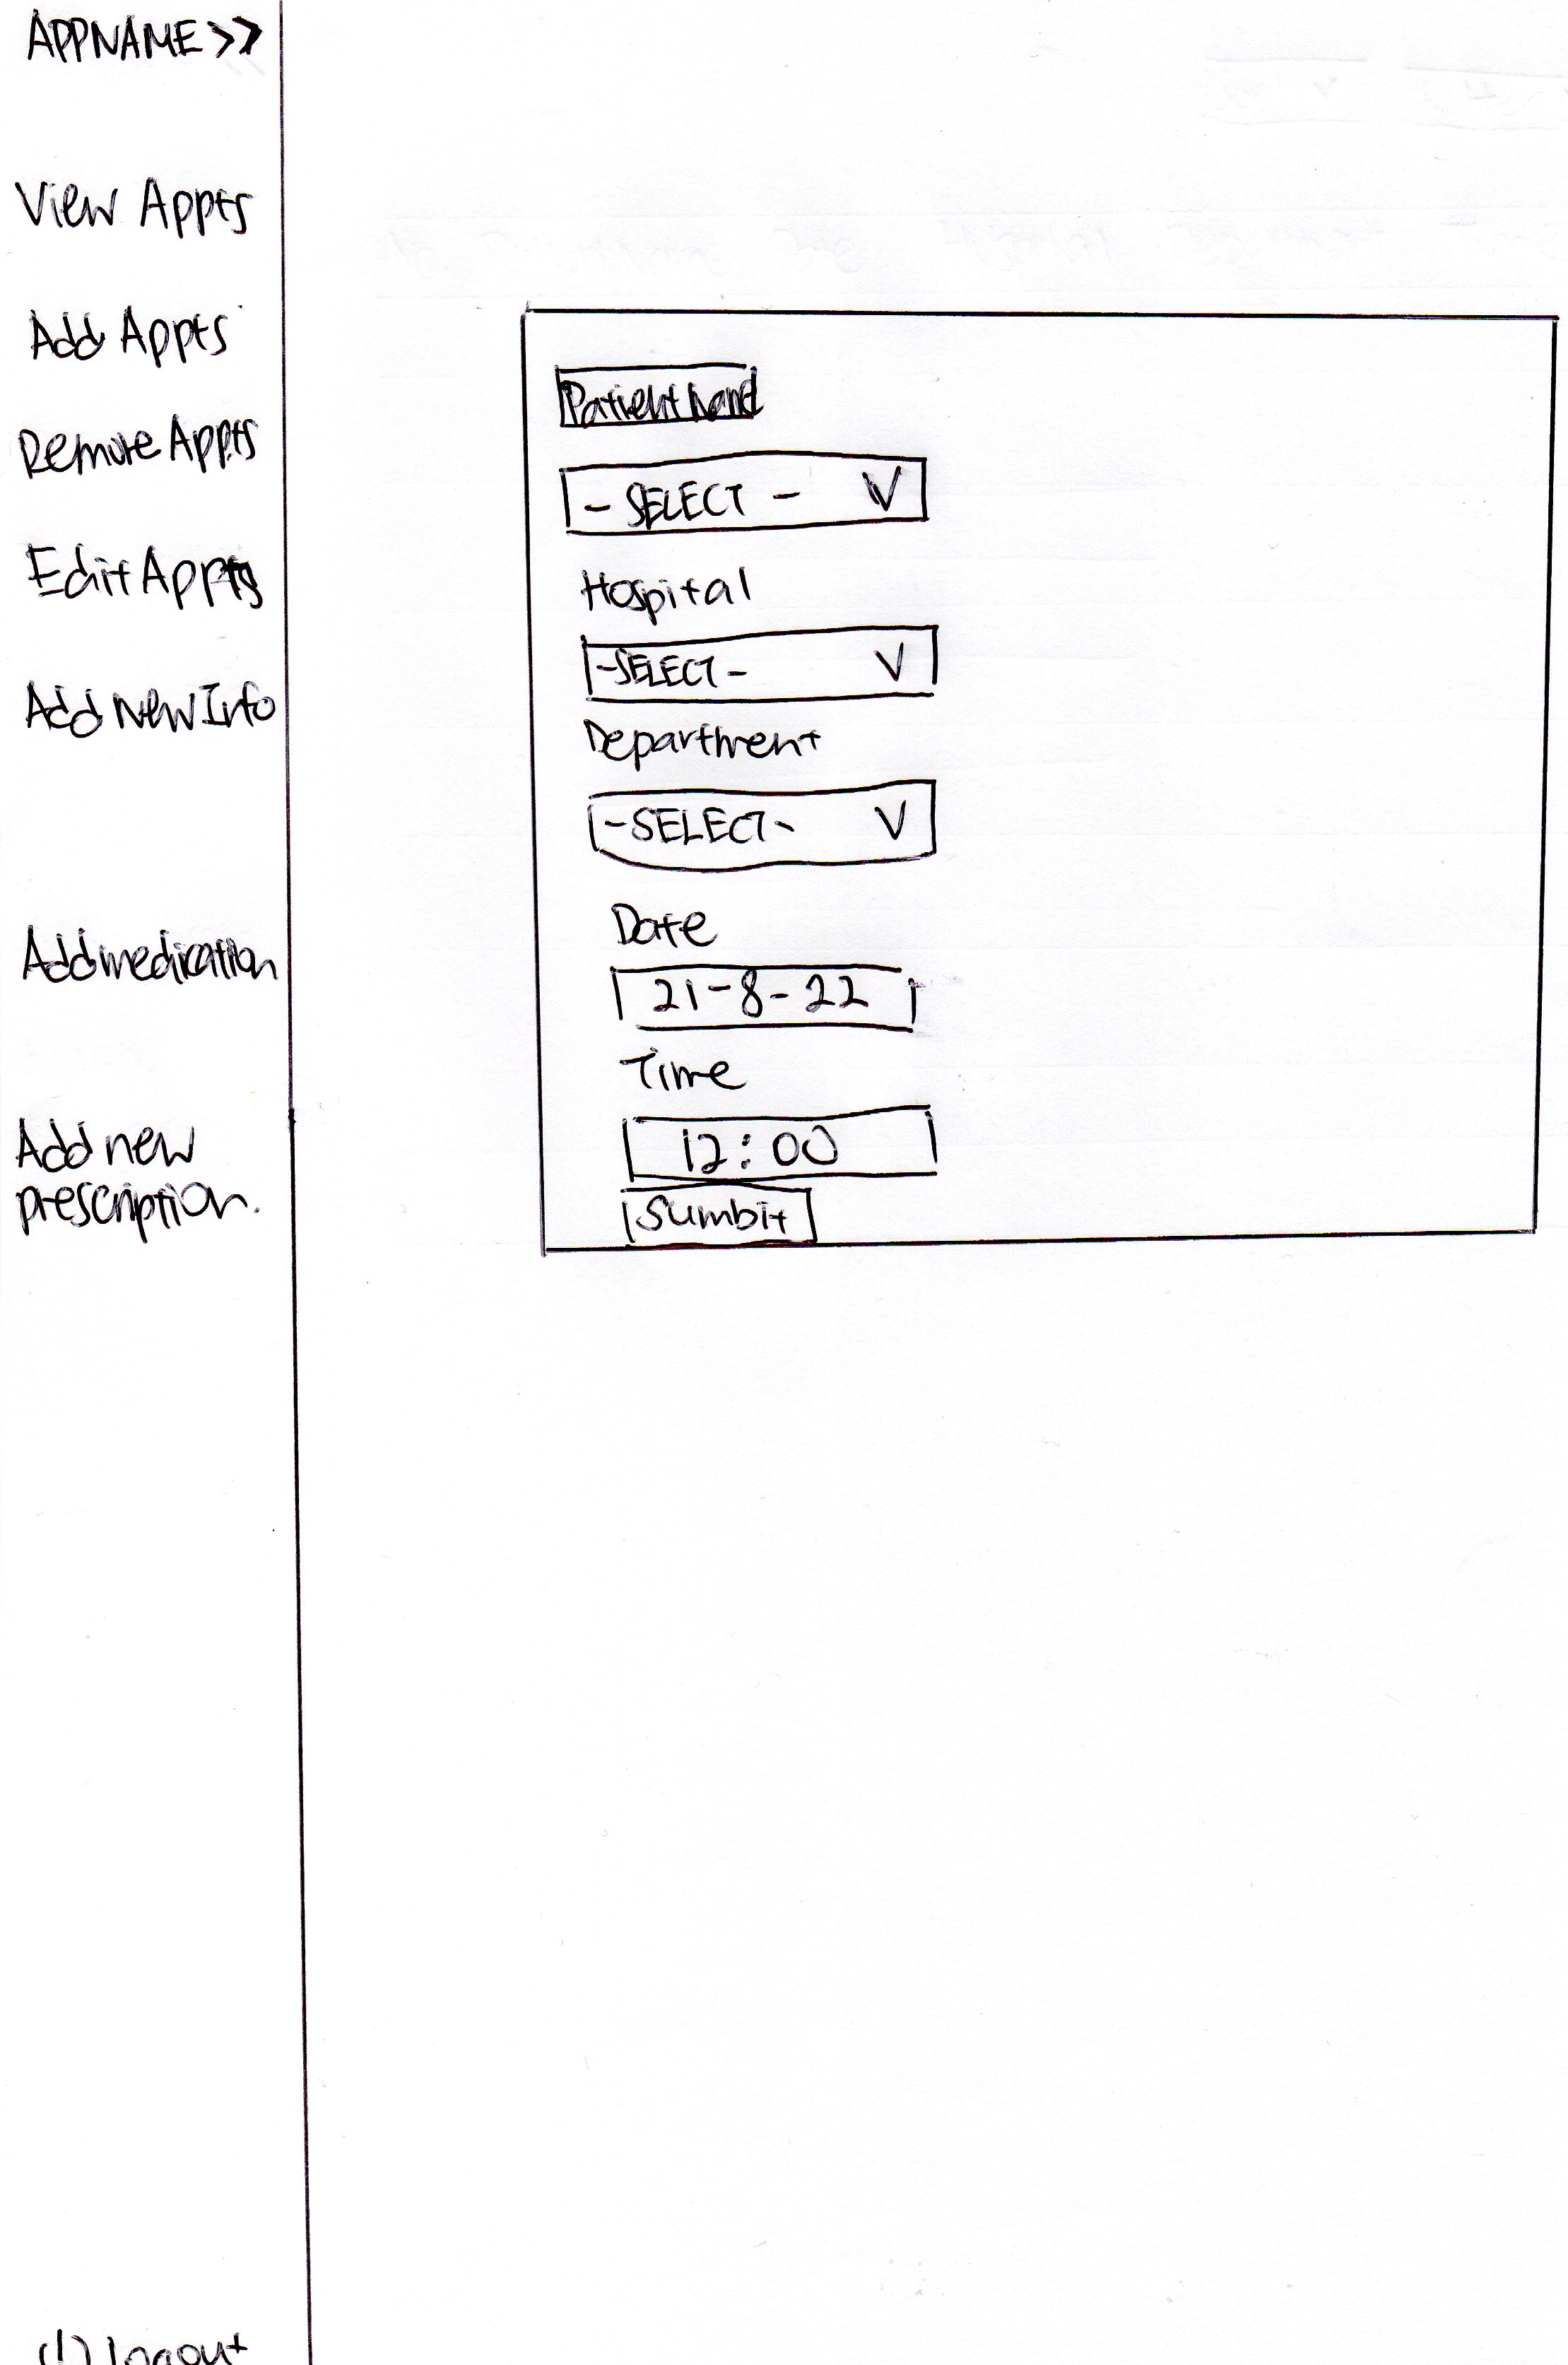 APPNAME >>
View Appts
Add Appts
Remove Appts
Edit Appts
Add new Info
Add medication
Add new
prescription.
logout
Patient
- SELECT - V
Hospital
-SELECT- V
Department
-SELECT- V
Date
21-8-22
Time
12:00
Sumbit